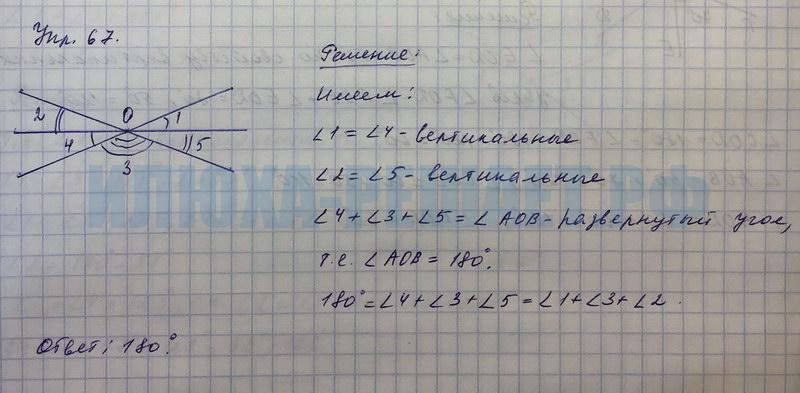 Упр. 67.
2 O 1
4 3 5
Решение:
Имеем:
∠1 = ∠4 - вертикальные
∠2 = ∠5 - вертикальные
∠4 + ∠3 + ∠5 = ∠AOB - развернутый угол,
т.е. ∠AOB = 180°.
180° = ∠4 + ∠3 + ∠5 = ∠1 + ∠3 + ∠2.
Ответ: 180°.